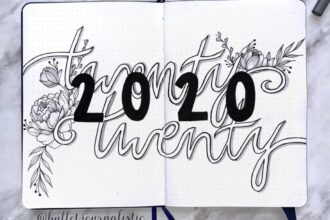 twenty
2020
twenty
@bulletjournalistic